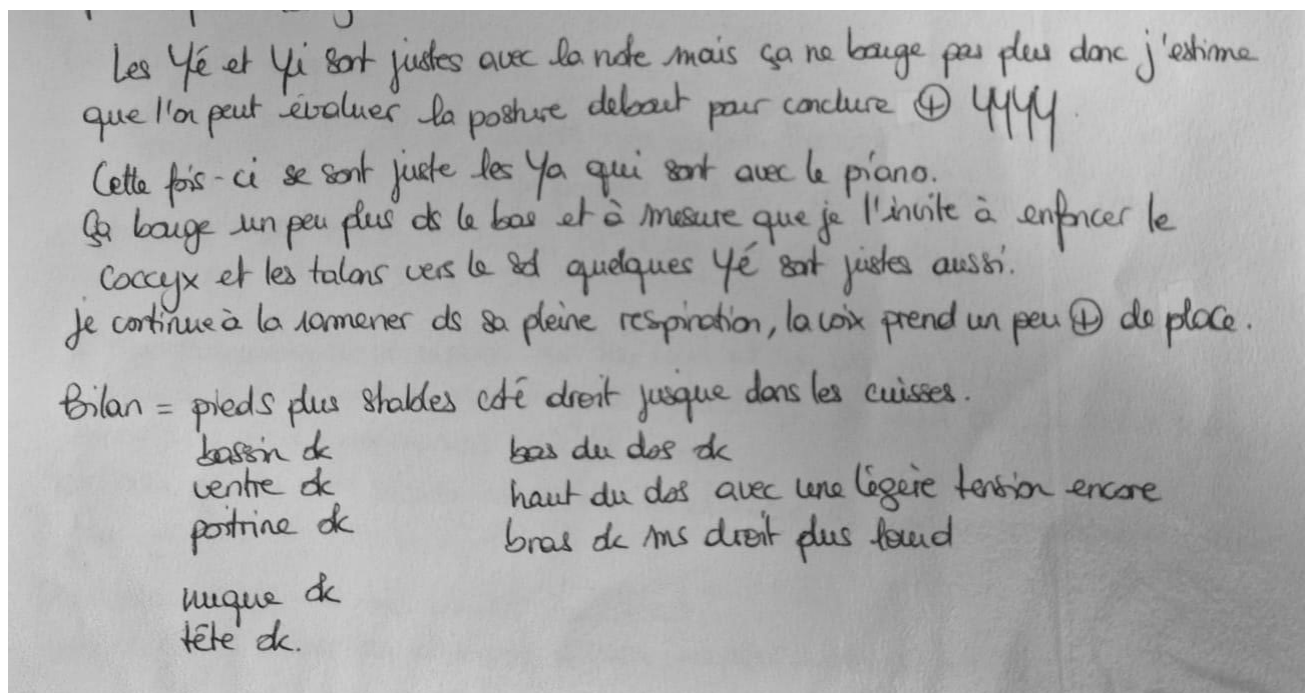 Les Yé et Yi sont justes avec la note mais ça ne bouge pas plus donc j'estime
que l'on peut évaluer la posture debout pour conclure ⊕ YYYY.
Cette fois-ci se sont juste les Ya qui sont avec le piano.
Ça bouge un peu plus ds le bas et à mesure que je l'invite à enfoncer le
coccyx et les talons vers le sol quelques Yé sont justes aussi.
Je continue à la ramener ds sa pleine respiration, la voix prend un peu ⊕ de place.
Bilan = pieds plus stables côté droit jusque dans les cuisses.
bassin ok bas du dos ok
ventre ok haut du dos avec une légère tension encore
poitrine ok bras ok ms droit plus lourd
nuque ok
tête ok.